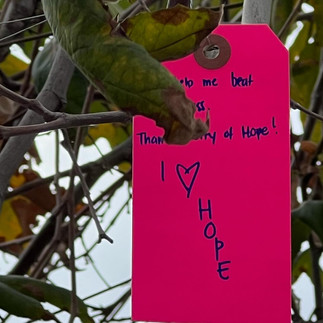 to me beat
Thank of Hope!
I ♡
H
O
P
E